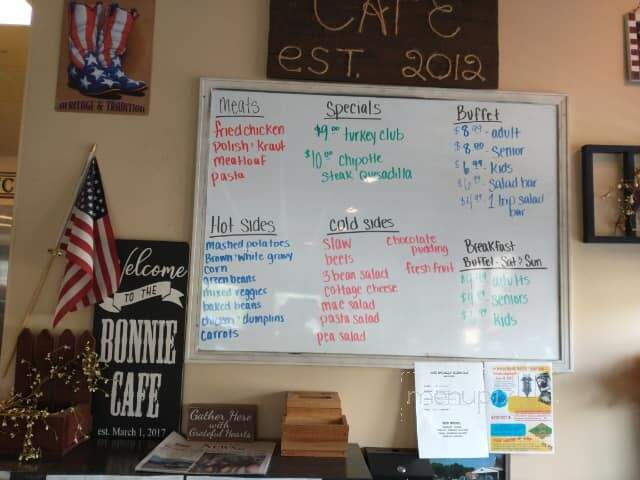 CAFE
EST. 2012
HERITAGE & TRADITION
Meats
fried chicken
polish & kraut
meatloaf
pasta
Specials
$9.00 turkey club
$10.00 chipotle
steak quesadilla
Buffet
$8.99 - adult
$8.00 - Senior
$6.99 - kids
salad bar
1 trip salad
bar
Hot sides
mashed potatoes
Brown & white gravy
corn
green beans
mixed veggies
baked beans
chicken & dumplins
carrots
cold sides
slaw
beets
3 bean salad
cottage cheese
mac salad
pasta salad
pea salad
chocolate
pudding
fresh fruit
Breakfast
Buffet - Sat & Sun
adults
seniors
kids
Welcome
TO THE
BONNIE
CAFE
est. March 1, 2017
Gather Here
with
Grateful Hearts
menupix